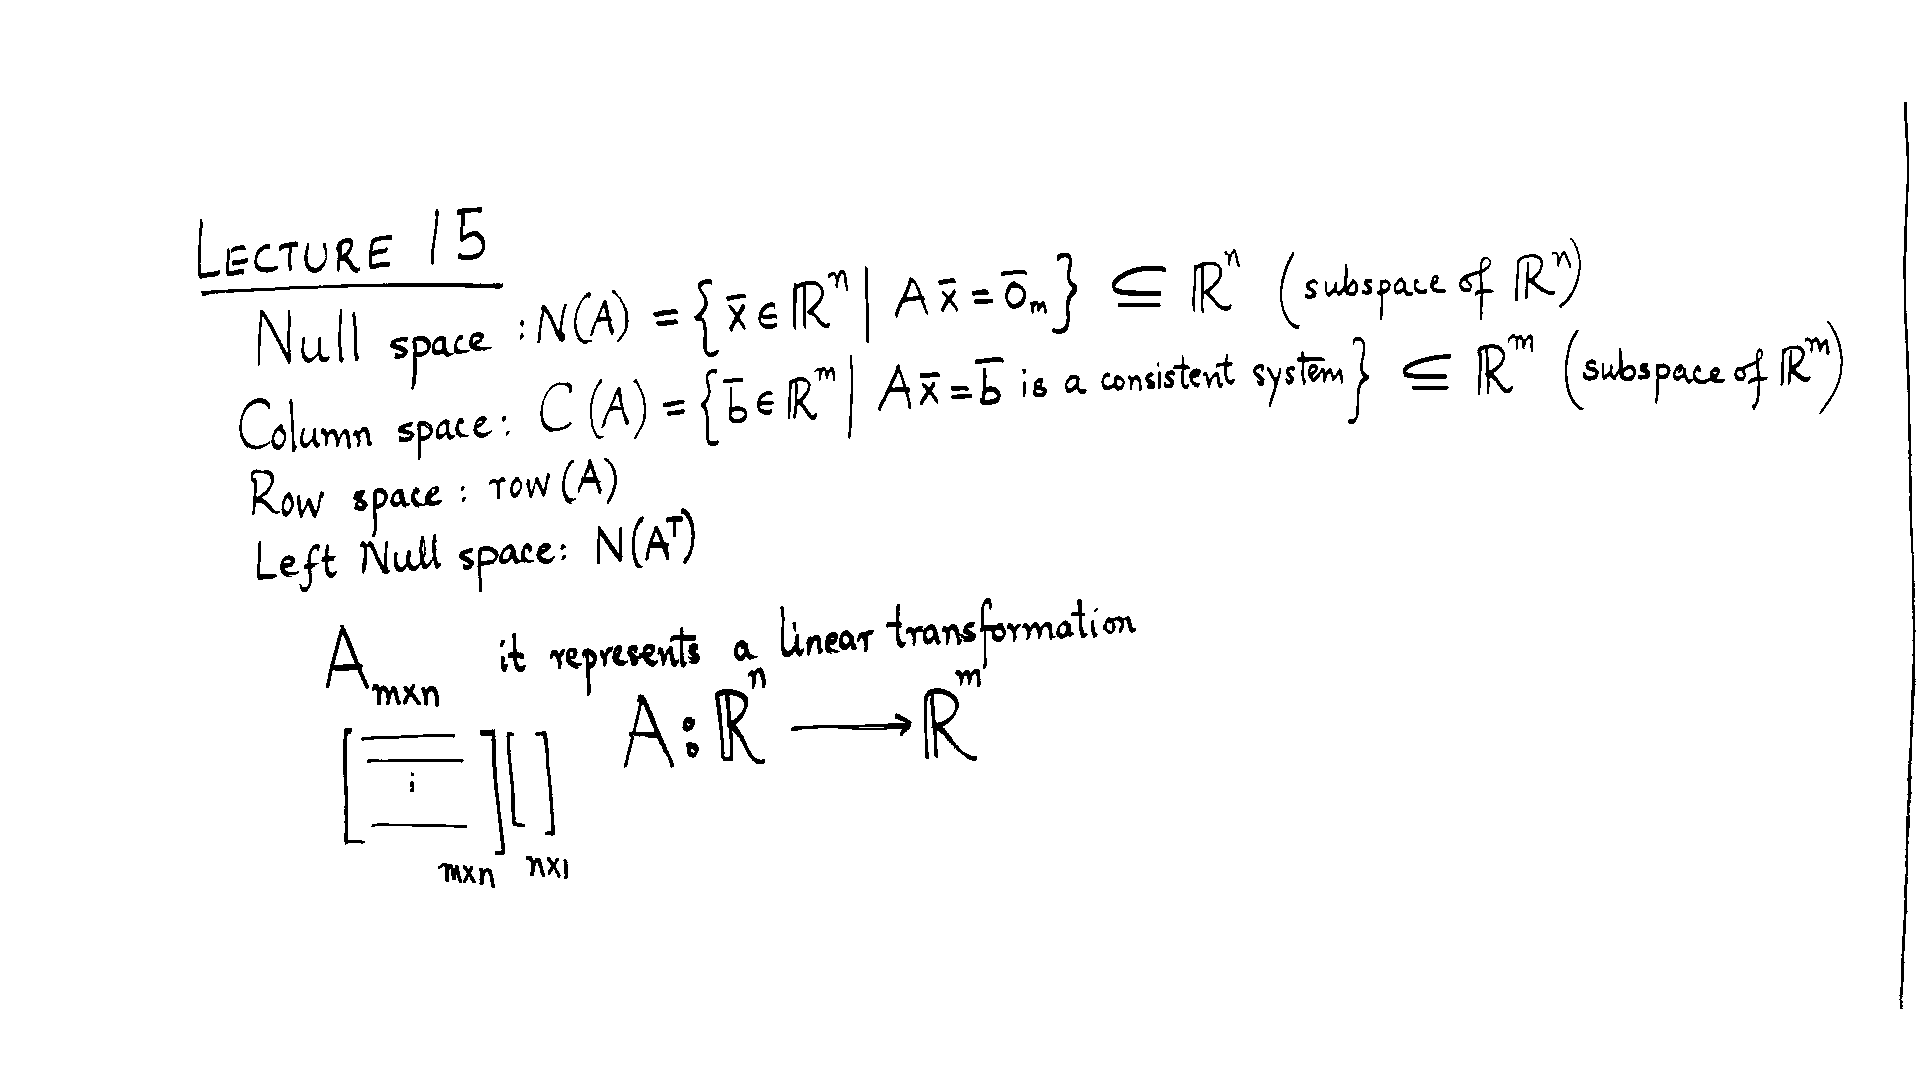 LECTURE 15
Null space : N(A) = { x̄ ∈ ℝⁿ | A x̄ = 0̄ₘ } ⊆ ℝⁿ (subspace of ℝⁿ)
Column space: C(A) = { b̄ ∈ ℝᵐ | A x̄ = b̄ is a consistent system } ⊆ ℝᵐ (subspace of ℝᵐ)
Row space : row(A)
Left Null space: N(Aᵀ)
A m×n it represents a linear transformation
A : ℝⁿ ⟶ ℝᵐ
[ ⋮ ] m×n [ ] n×1